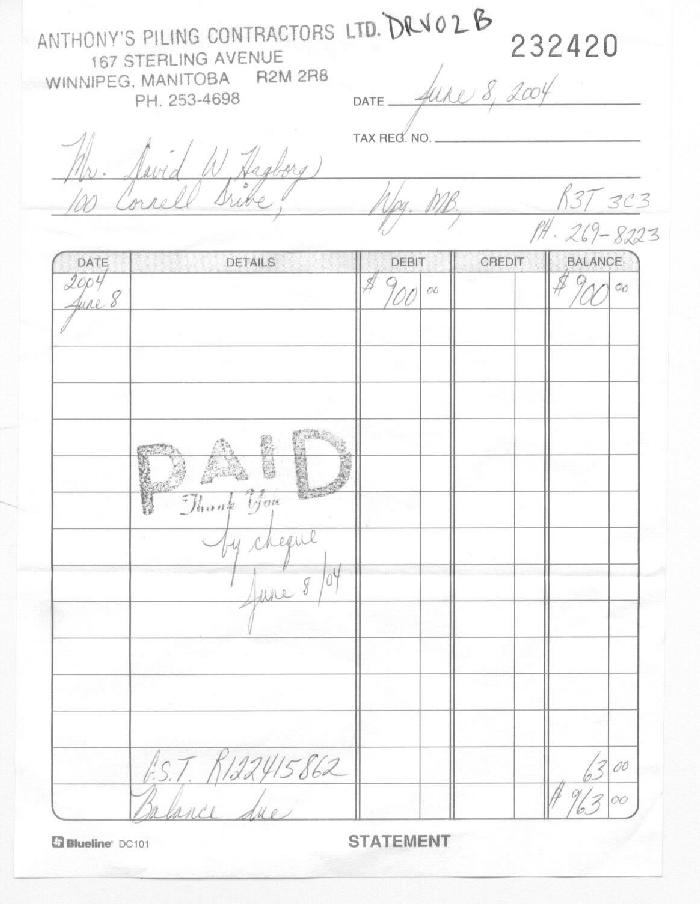 ANTHONY'S PILING CONTRACTORS LTD. DRV02B
232420
167 STERLING AVENUE
WINNIPEG, MANITOBA R2M 2R8
PH. 253-4698
DATE June 8, 2004
TAX REG. NO.
Mr. David W Hagborg
100 Cornell Drive, Wpg. MB, R3T 3C3
PH. 269-8223
DATE DETAILS DEBIT CREDIT BALANCE
2004
June 8 $ 900 00 $ 900 00
PAID
Thank You
by cheque
June 8/04
G.S.T. R122415862 63 00
Balance due $ 963 00
Blueline DC101 STATEMENT